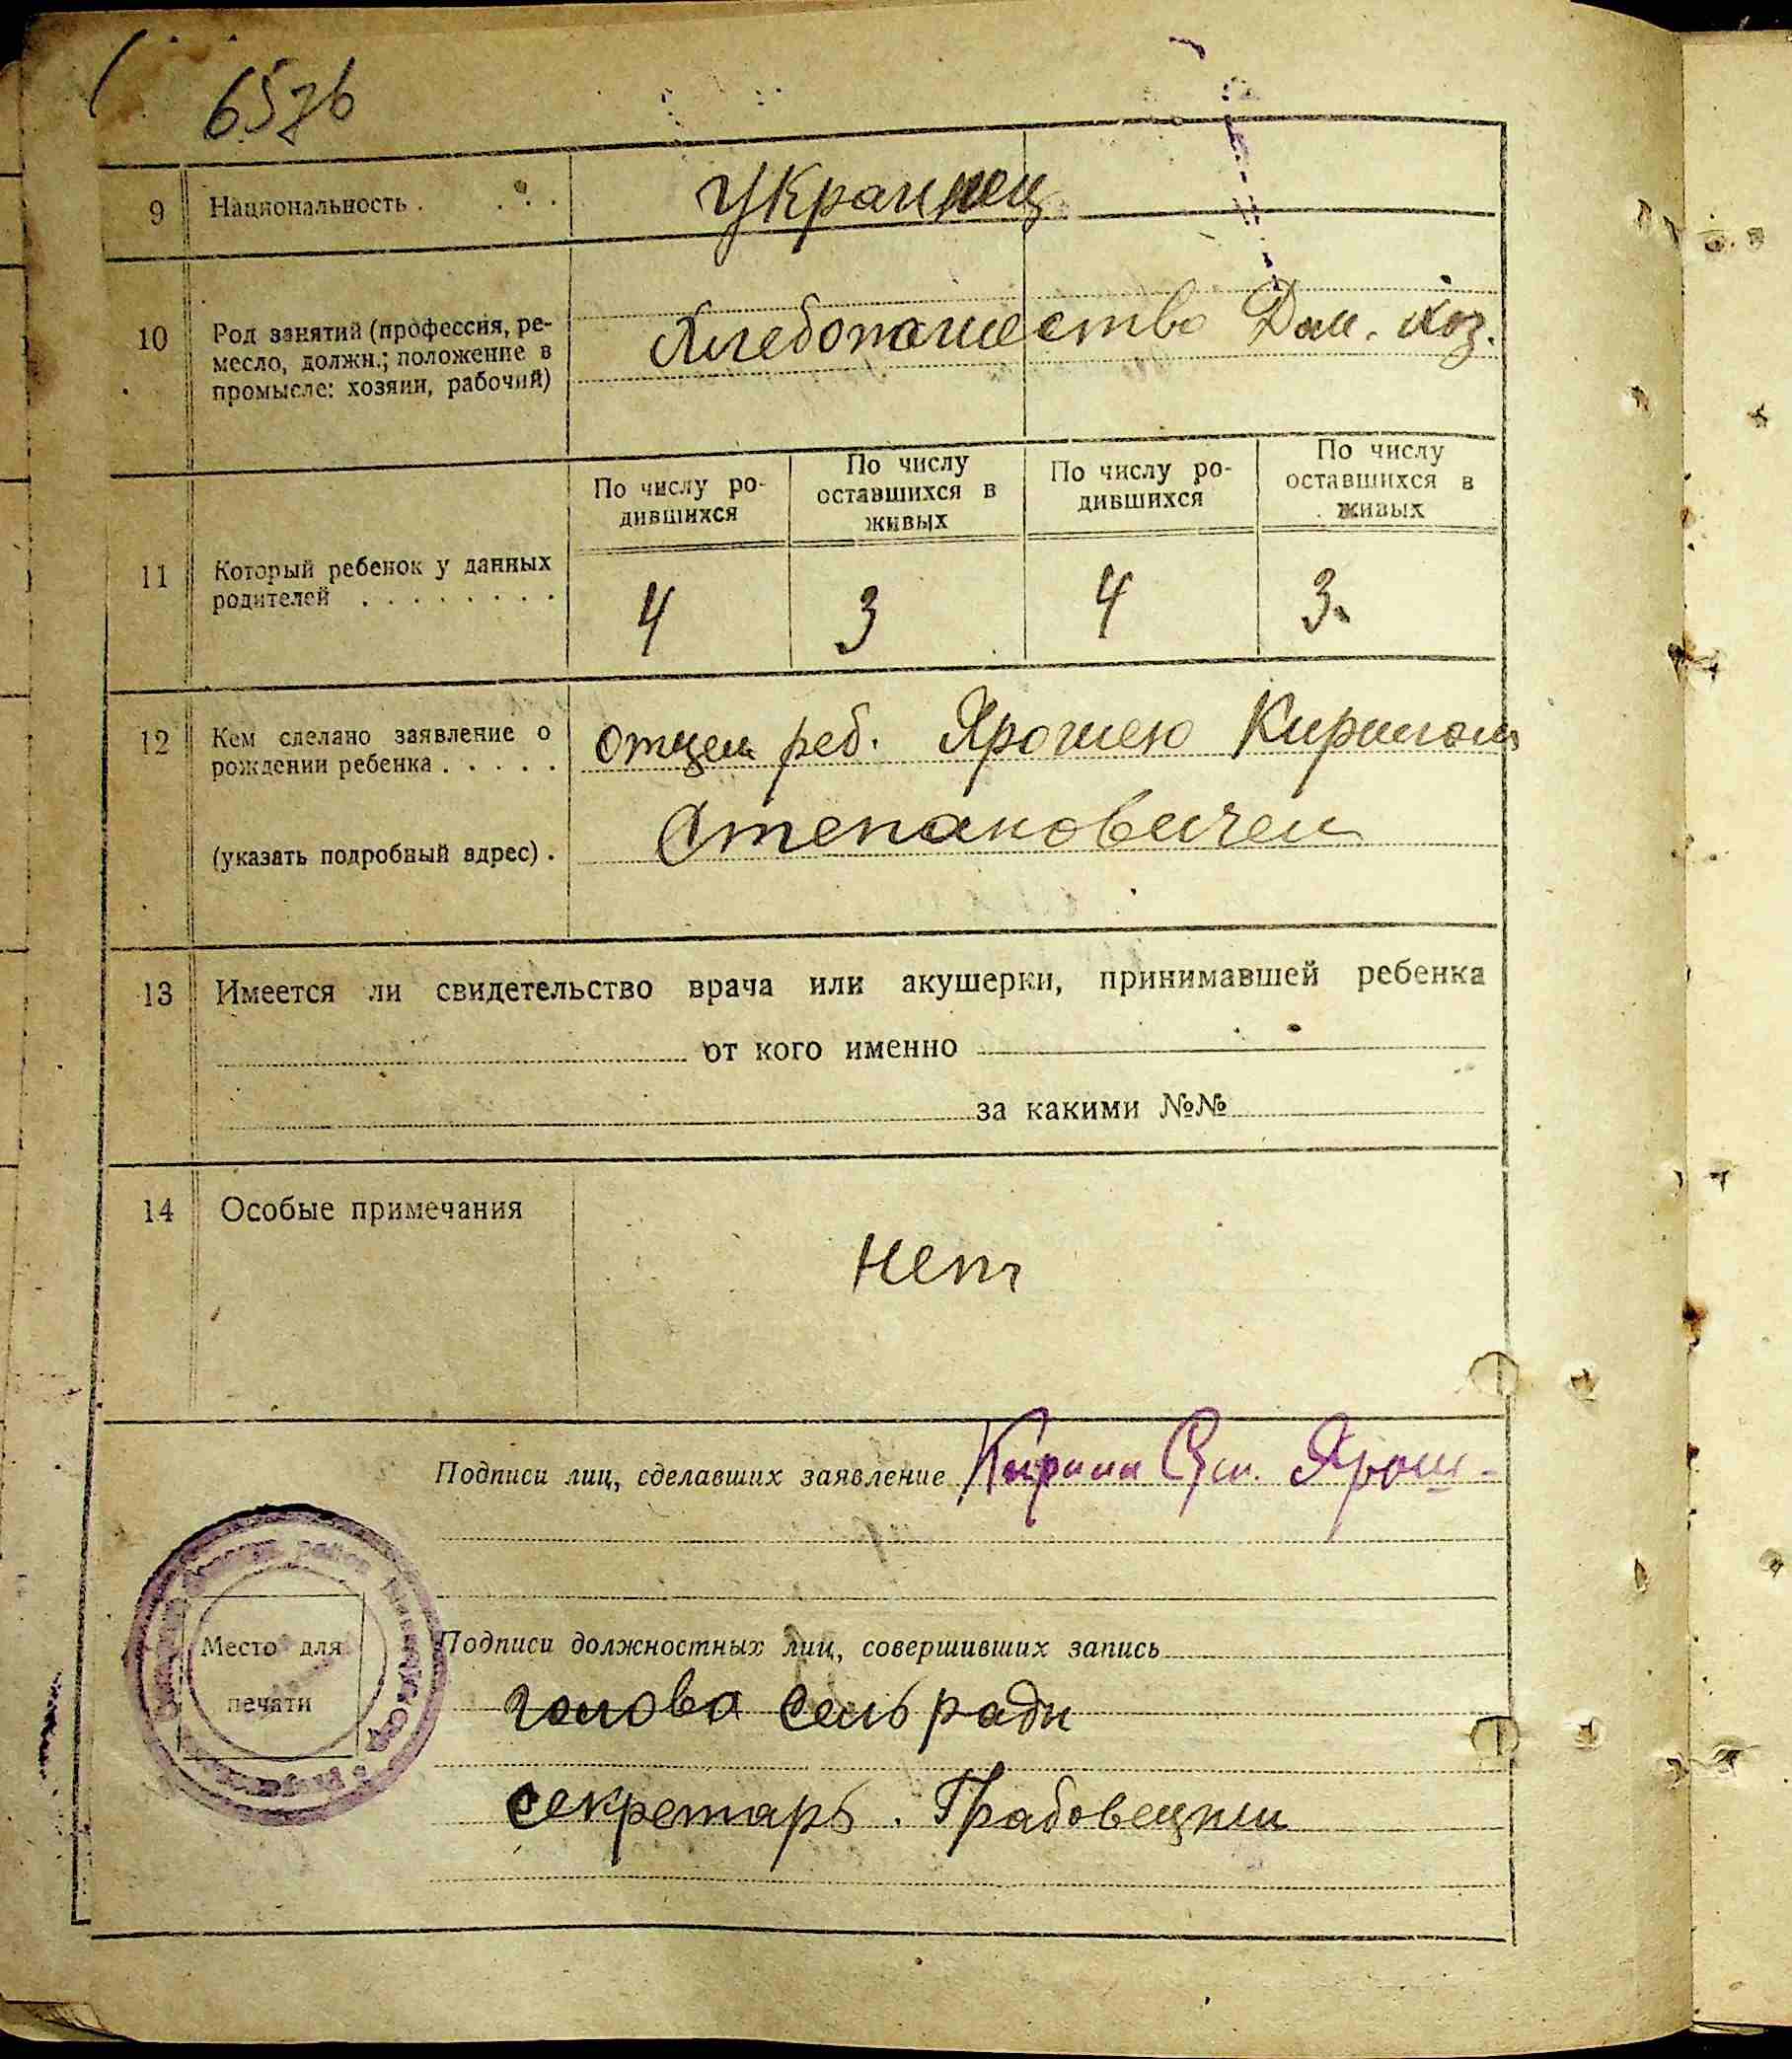 6576
9 Национальность . . . . Украинец
10 Род занятий (профессия, ре-
месло, должн.; положение в
промысле: хозяин, рабочий)
Хлебопашество Дом. хоз.
По числу ро-
дившихся
По числу
оставшихся в
живых
По числу ро-
дившихся
По числу
оставшихся в
живых
11 Который ребенок у данных
родителей . . . . . . . .
4 3 4 3.
12 Кем сделано заявление о
рождении ребенка . . . . .
отцем реб. Ярошею Кирилом
(указать подробный адрес) . Степановичем
13 Имеется ли свидетельство врача или акушерки, принимавшей ребенка
от кого именно
за какими №№
14 Особые примечания
нет
Подписи лиц, сделавших заявление Кирила Ст. Ярош-
Место для
печати
Подписи должностных лиц, совершивших запись
голова сельради
секретарь . Грабовецкий